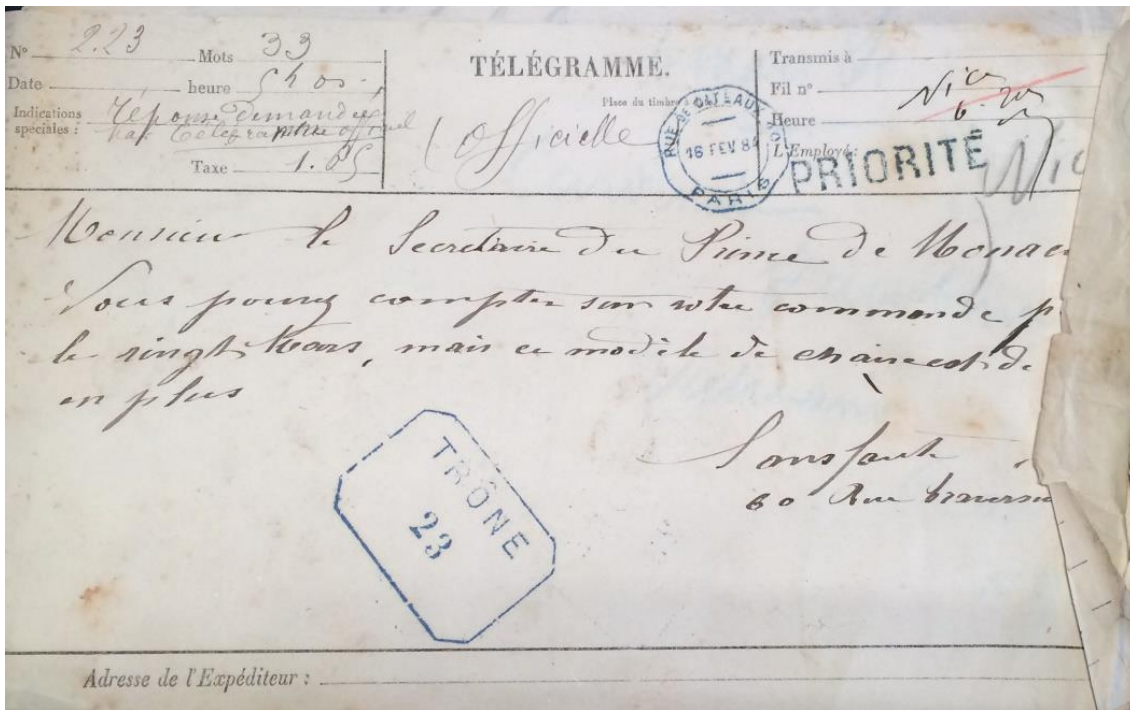 N° 2.23 Mots 33
Date heure 5h 05
Indications spéciales : Réponse demandée
par télégramme officiel
Taxe 1.65
TÉLÉGRAMME.
Place du timbre à
Officielle
RUE DE
16 FEV 84
PARIS
Transmis à
Fil n°
Nice
Heure
L'Employé :
PRIORITÉ
Monsieur le Secrétaire du Prince de Monaco
Vous pouvez compter sur votre commande p
le vingt Mars, mais ce modèle de chaine est de
en plus
Sansfaute
60 Rue
TRÔNE
23
Adresse de l'Expéditeur :